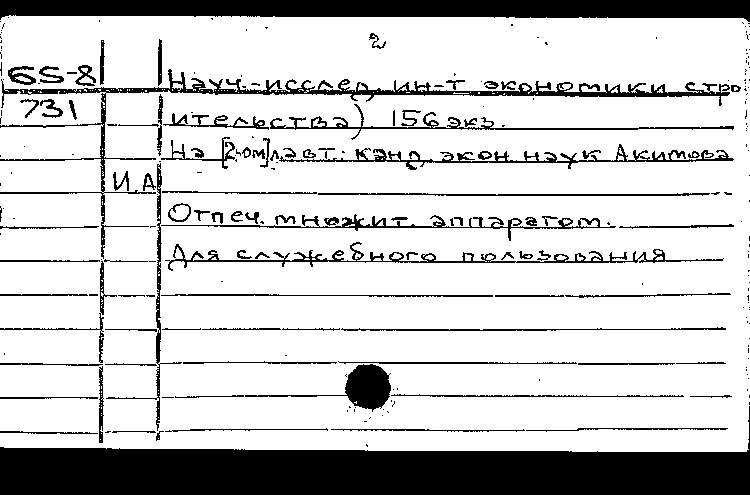 2
65-8 Науч.-исслед. ин-т экономики стро
731 ительства) 156 экз.
На [2-ом] л. авт.: канд. экон. наук Акимова
И.А
Отпеч. множит. аппаратом.
Для служебного пользования